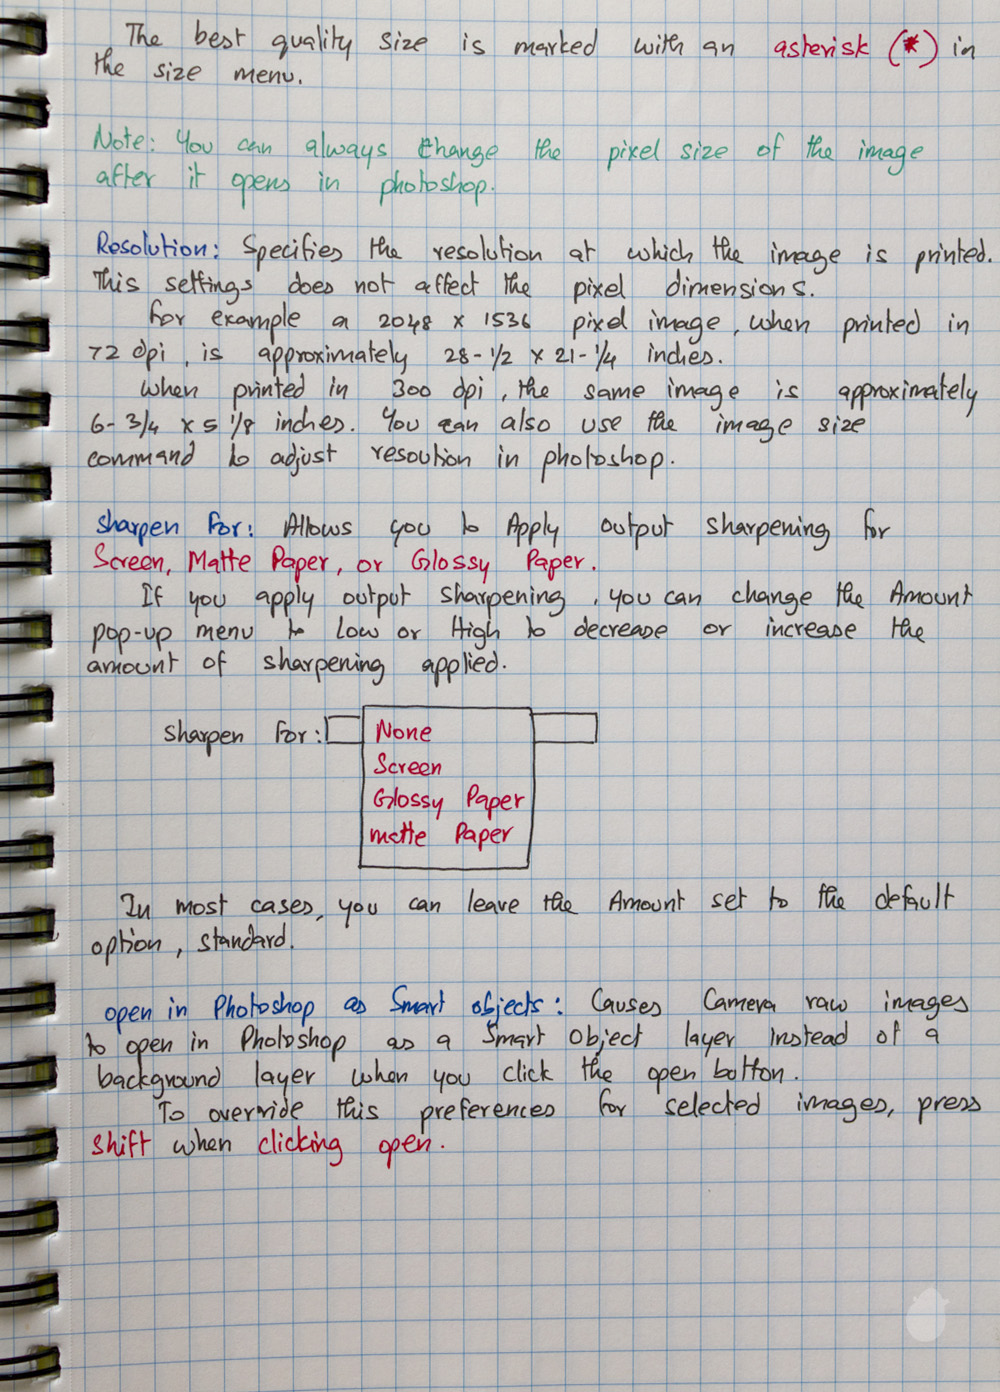 The best quality size is marked with an asterisk (*) in
the size menu.
Note: You can always change the pixel size of the image
after it opens in photoshop.
Resolution: Specifies the resolution at which the image is printed.
This settings does not affect the pixel dimensions.
For example a 2048 x 1536 pixel image, when printed in
72 dpi, is approximately 28-1/2 x 21-1/4 inches.
When printed in 300 dpi, the same image is approximately
6-3/4 x 5 1/8 inches. You can also use the image size
command to adjust resoution in photoshop.
Sharpen For: Allows you to Apply output sharpening for
Screen, Matte Paper, or Glossy Paper.
If you apply output sharpening, you can change the Amount
pop-up menu to Low or High to decrease or increase the
amount of sharpening applied.
Sharpen For: None
Screen
Glossy Paper
matte Paper
In most cases, you can leave the Amount set to the default
option, standard.
open in Photoshop as Smart objects: Causes Camera raw images
to open in Photoshop as a Smart Object layer instead of a
background layer when you click the open botton.
To override this preferences for selected images, press
Shift when clicking open.